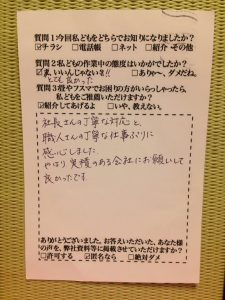 質問1今回私どもをどちらでお知りになりましたか?
☑チラシ □電話帳 □ネット □紹介 その他
質問2私どもの作業中の態度はいかがでしたか?
☑ま、いいんじゃないを!! □ありゃ〜、ダメだね。
とても良かった
質問3畳やフスマでお困りの方がいらっしゃったら、
私どもをご推薦いただけますか?
☑紹介してあげるよ □いや、教えない。
社長さんの丁寧な対応と、
職人さんの丁寧な仕事ぶりに
感心しました
やはり実積のある会社にお願いして
良かったです。
ありがとうございました。お答えいただいた、あなた様
の声を、弊社資料等に掲載させていただけますか?
□許可する ☑匿名なら □絶対ダメ